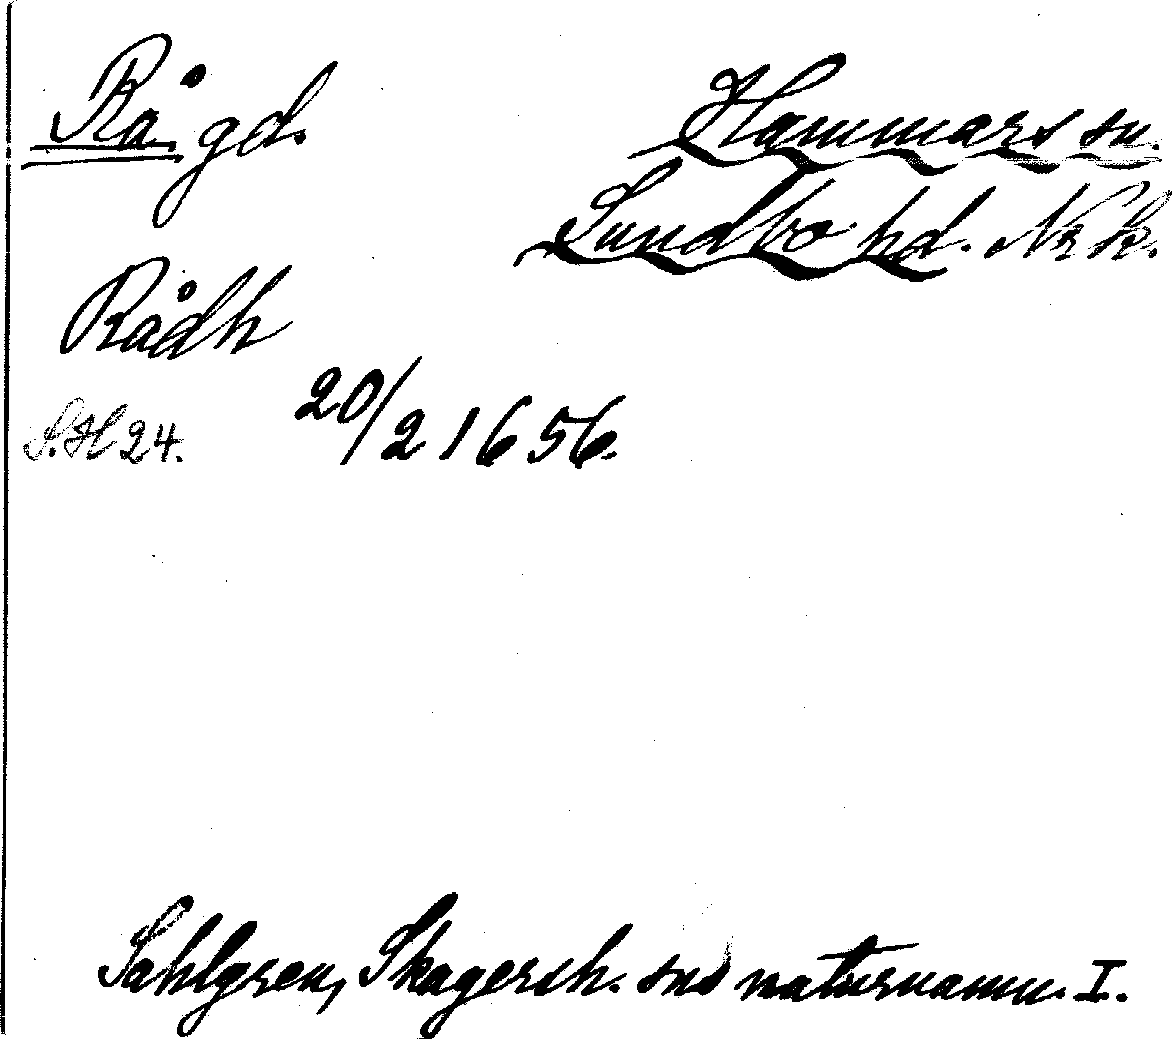 Rå gd. Hammars sn.
Sundbo hd. Nrk.
Rådh
S.H 24. 20/2 1656.
Sahlgren, Skagersh. sns naturnamn. I.